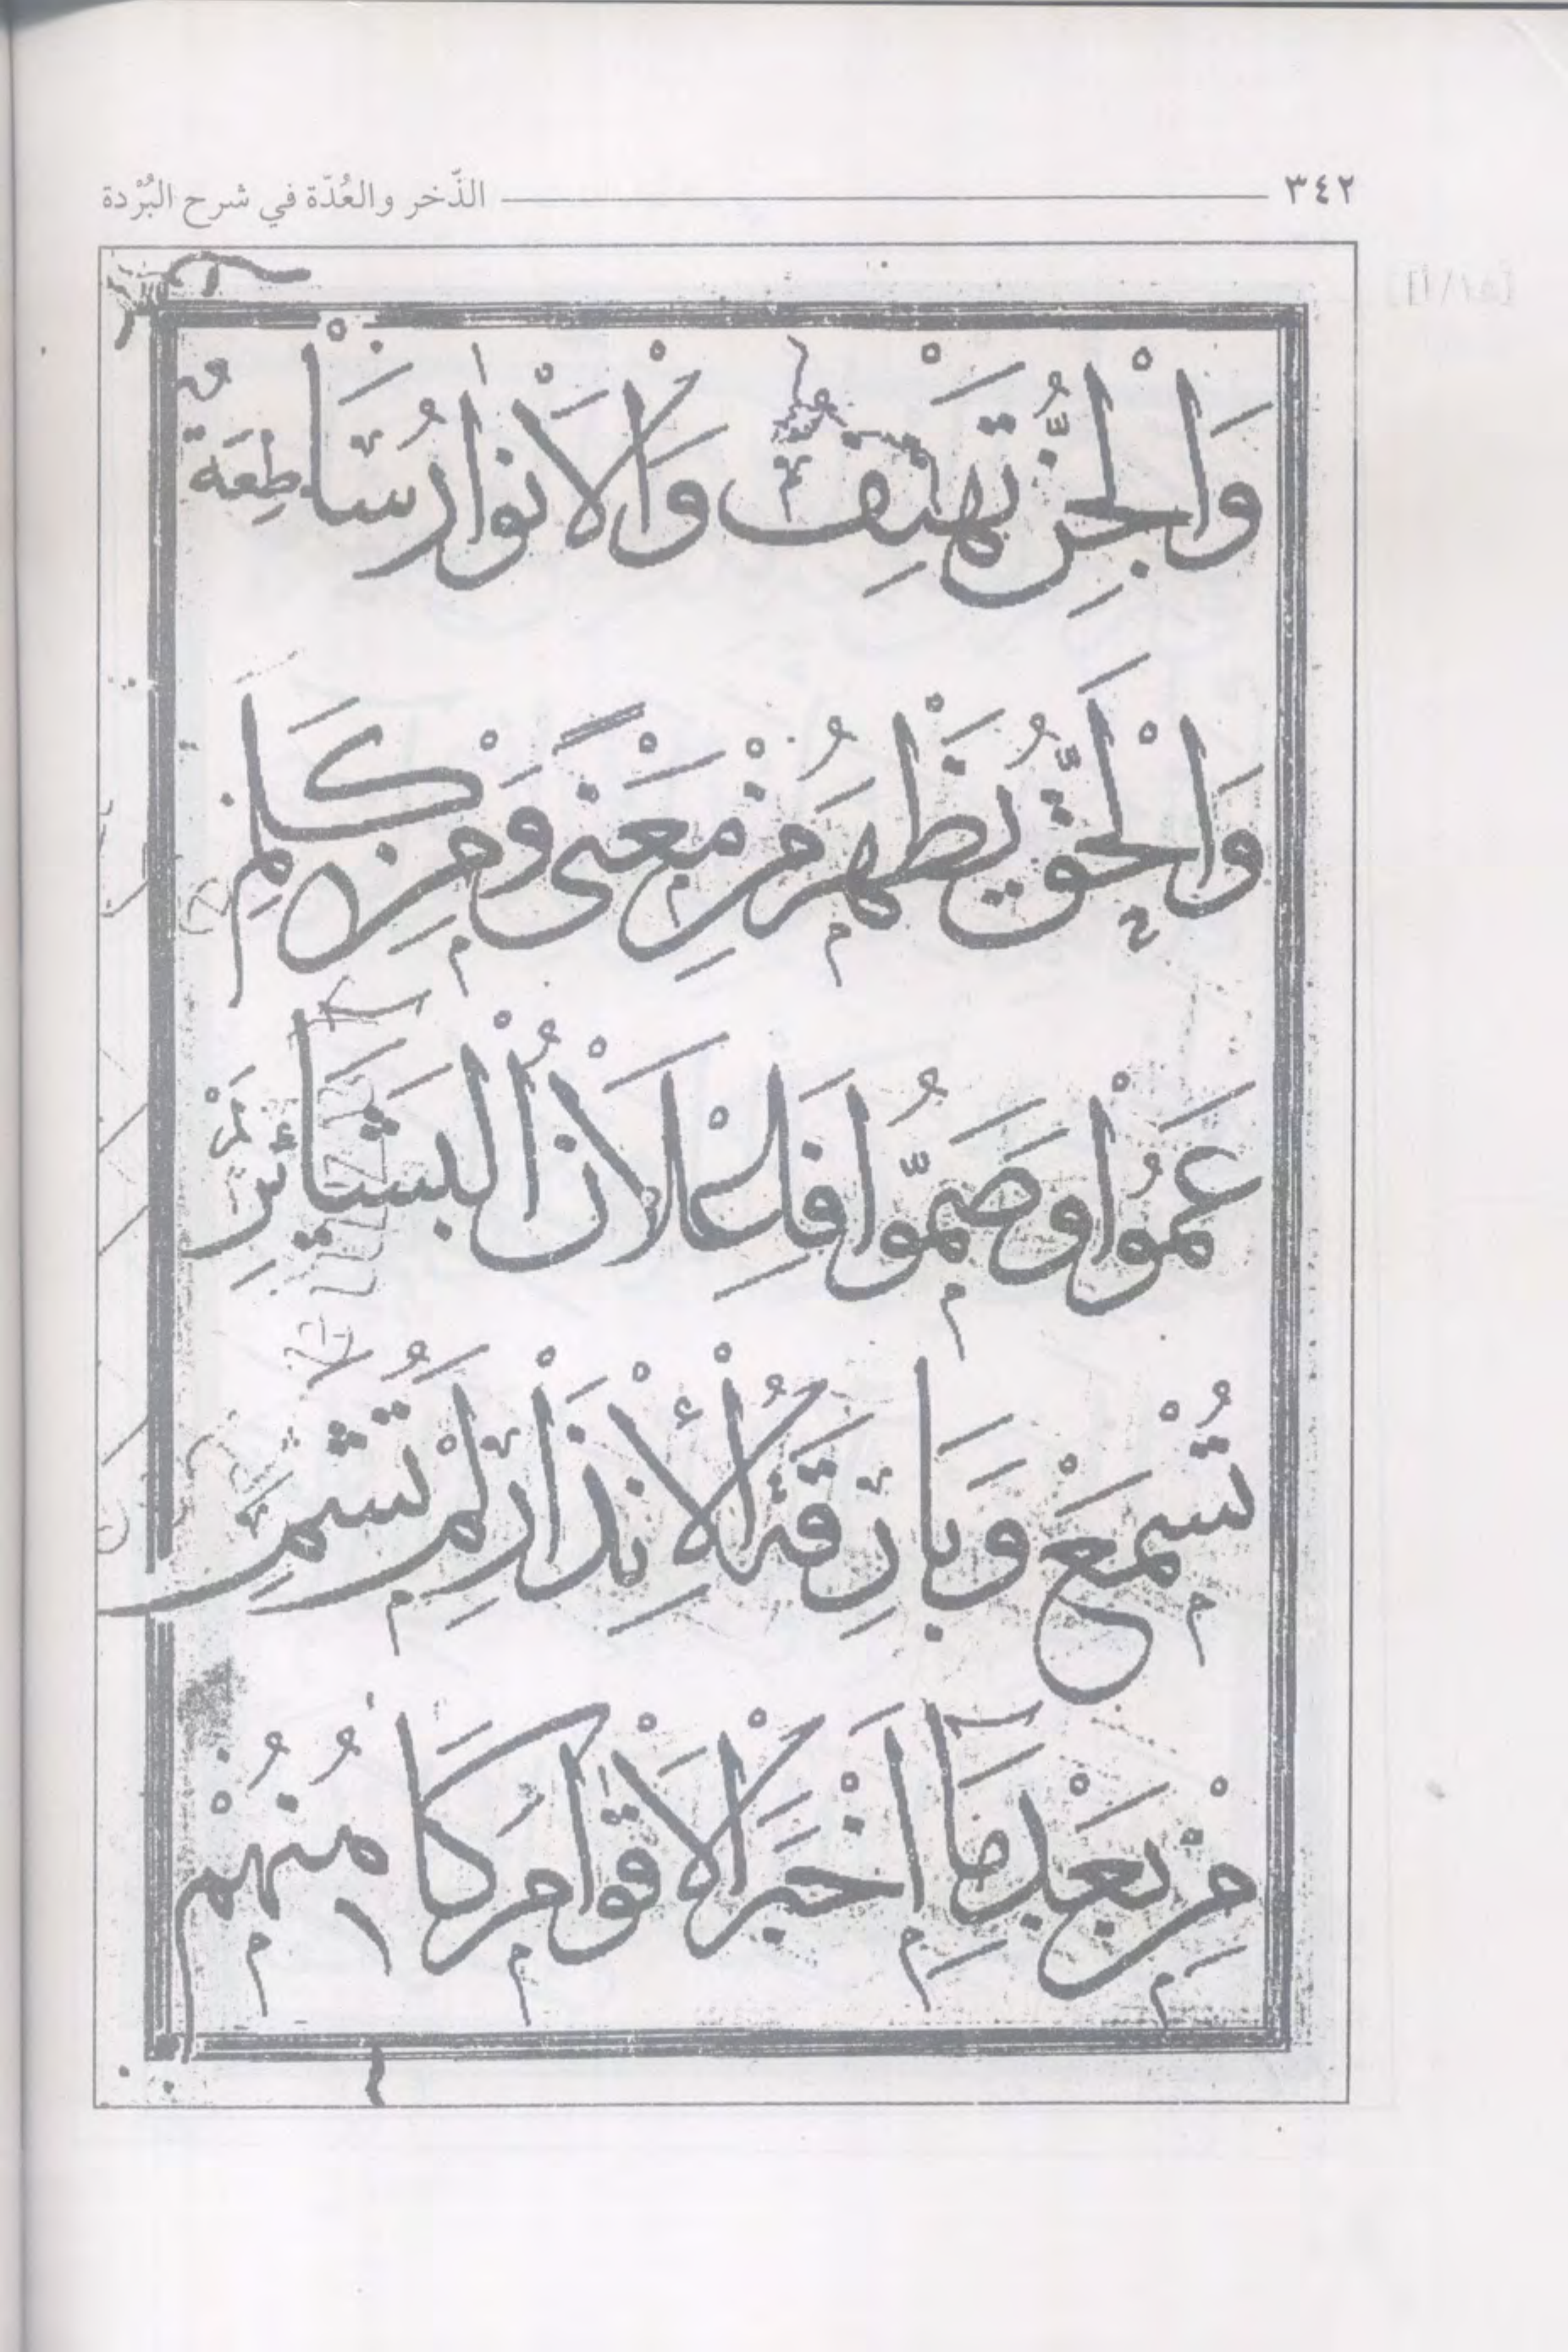 ٣٤٢ الذّخر والعُدّة في شرح البُرْدة
وَالْجِنُّ تَهْتِفُ وَالْأَنْوَارُ سَاطِعَةٌ
وَالْحَقُّ يَظْهَرُ مِنْ مَعْنًى وَمِنْ كَلِمِ
عَمُوْا وَصَمُّوا فَإِعْلَانُ الْبَشَائِرِ لَمْ
تُسْمَعْ وَبَارِقَةُ الْإِنْذَارِ لَمْ تُشَمِ
مِنْ بَعْدِ مَا أَخْبَرَ الْأَقْوَامَ كَا
هِنُهُمْ